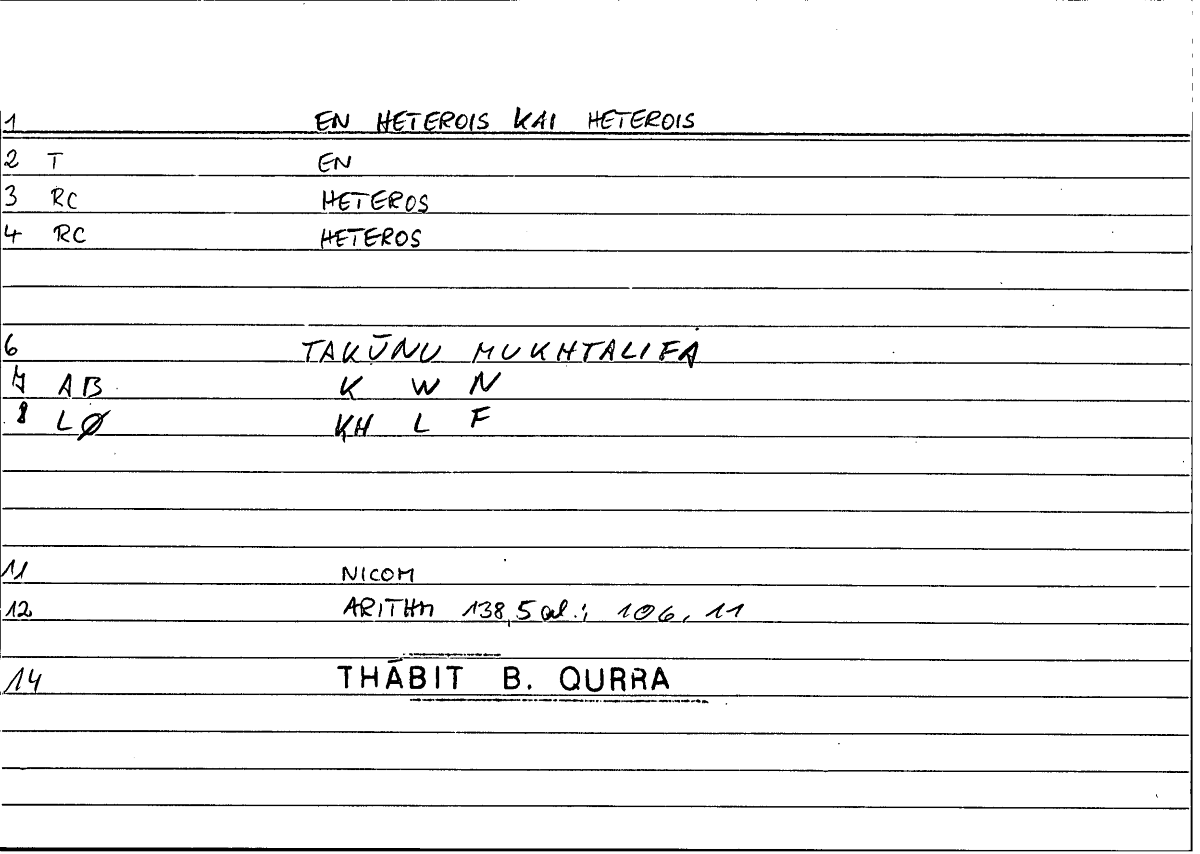 1 EN HETEROIS KAI HETEROIS
2 T EN
3 RC HETEROS
4 RC HETEROS
6 TAKŪNU MUKHTALIFA
7 AB K W N
8 LØ KH L F
11 NICOM
12 ARITHM 138,5 al.; 106, 11
14 THĀBIT B. QURRA